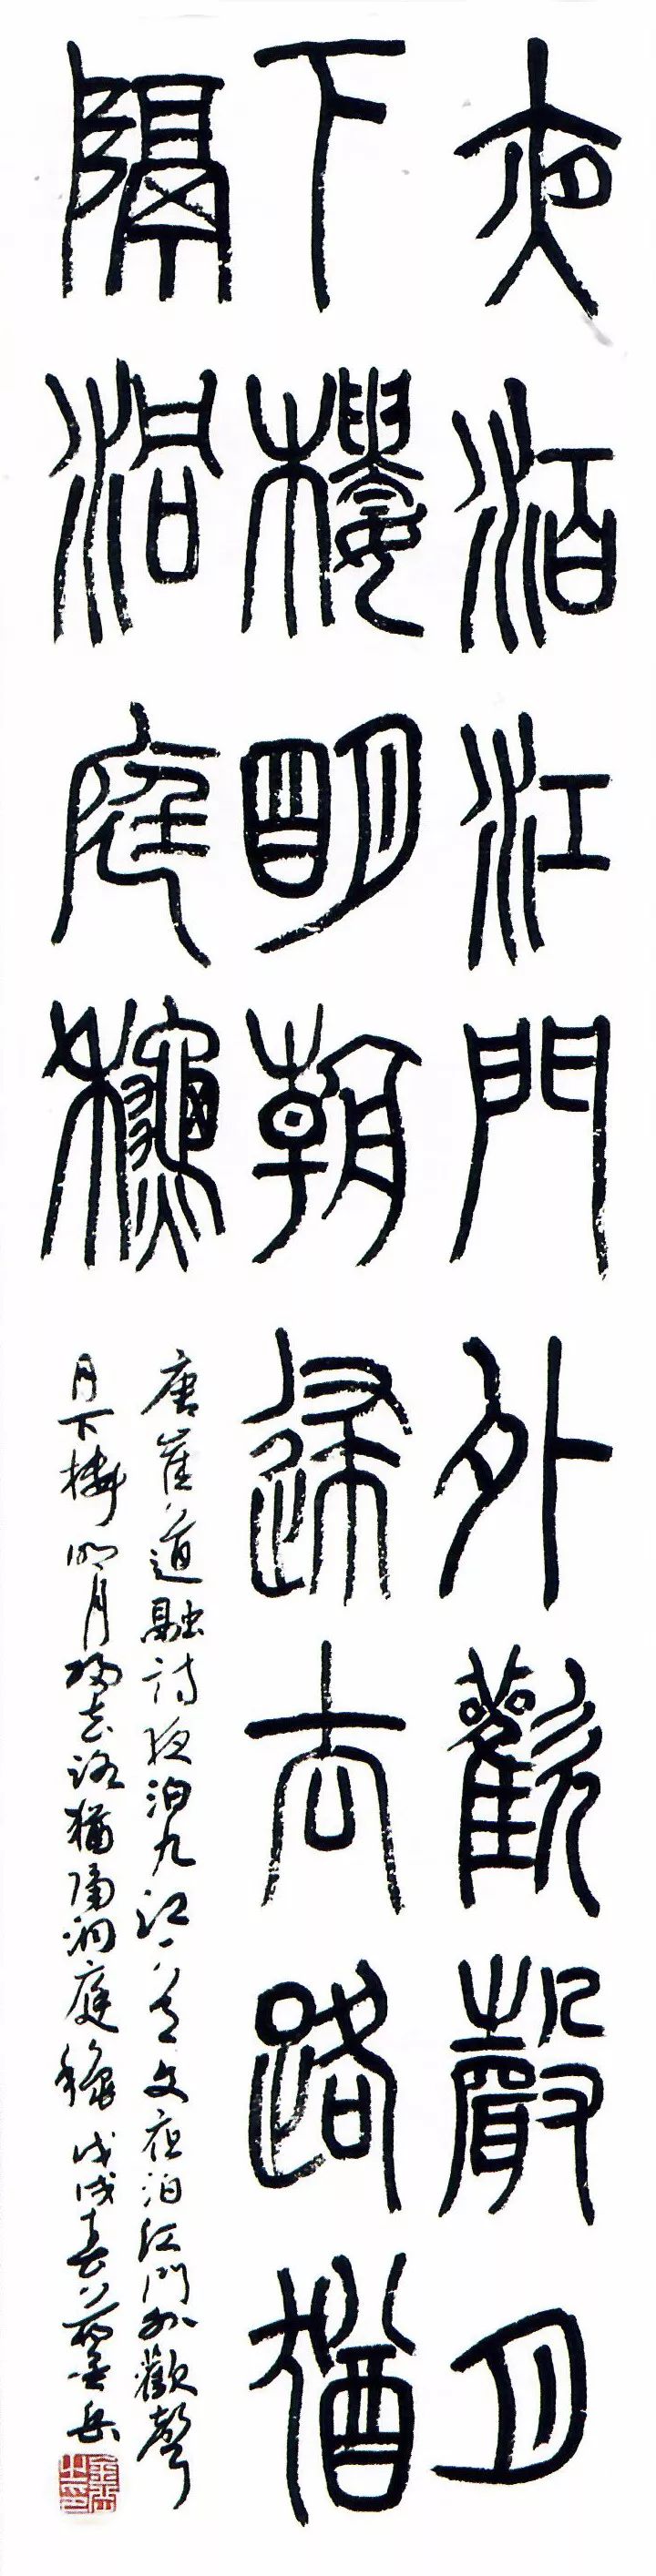 夜泊江門外歡聲月
下樓明朝歸去路猶
隔洞庭龝
唐崔道融詩夜泊九江一首文夜泊江門外歡聲
月下樓明月歸去路猶隔洞庭龝戊戌春岳